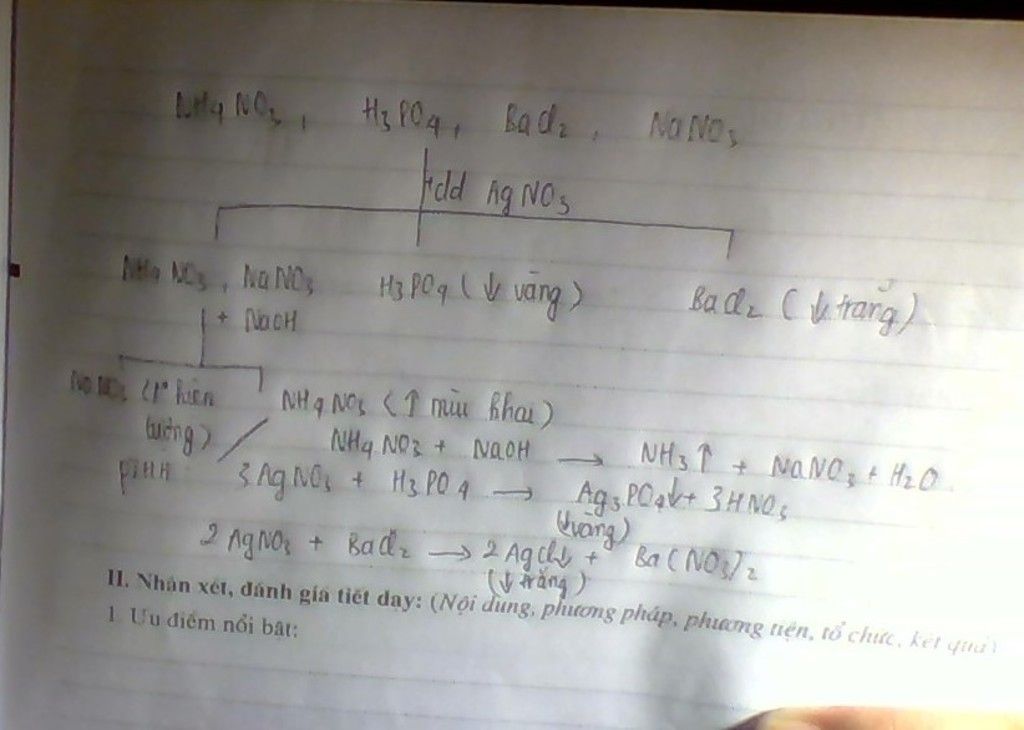 NH4NO3, H3PO4, BaCl2, NaNO3
+dd AgNO3
NH4NO3, NaNO3 H3PO4 (↓ vàng) BaCl2 (↓ trắng)
+ NaOH
NaNO3 hiện NH4NO3 (↑ mùi khai)
tượng) NH4NO3 + NaOH → NH3↑ + NaNO3 + H2O
3AgNO3 + H3PO4 → Ag3PO4↓ + 3HNO3
(↓vàng)
2AgNO3 + BaCl2 → 2AgCl↓ + Ba(NO3)2
(↓ trắng)
II. Nhận xét, đánh giá tiết dạy: (Nội dung, phương pháp, phương tiện, tổ chức, kết quả)
1. Ưu điểm nổi bật: